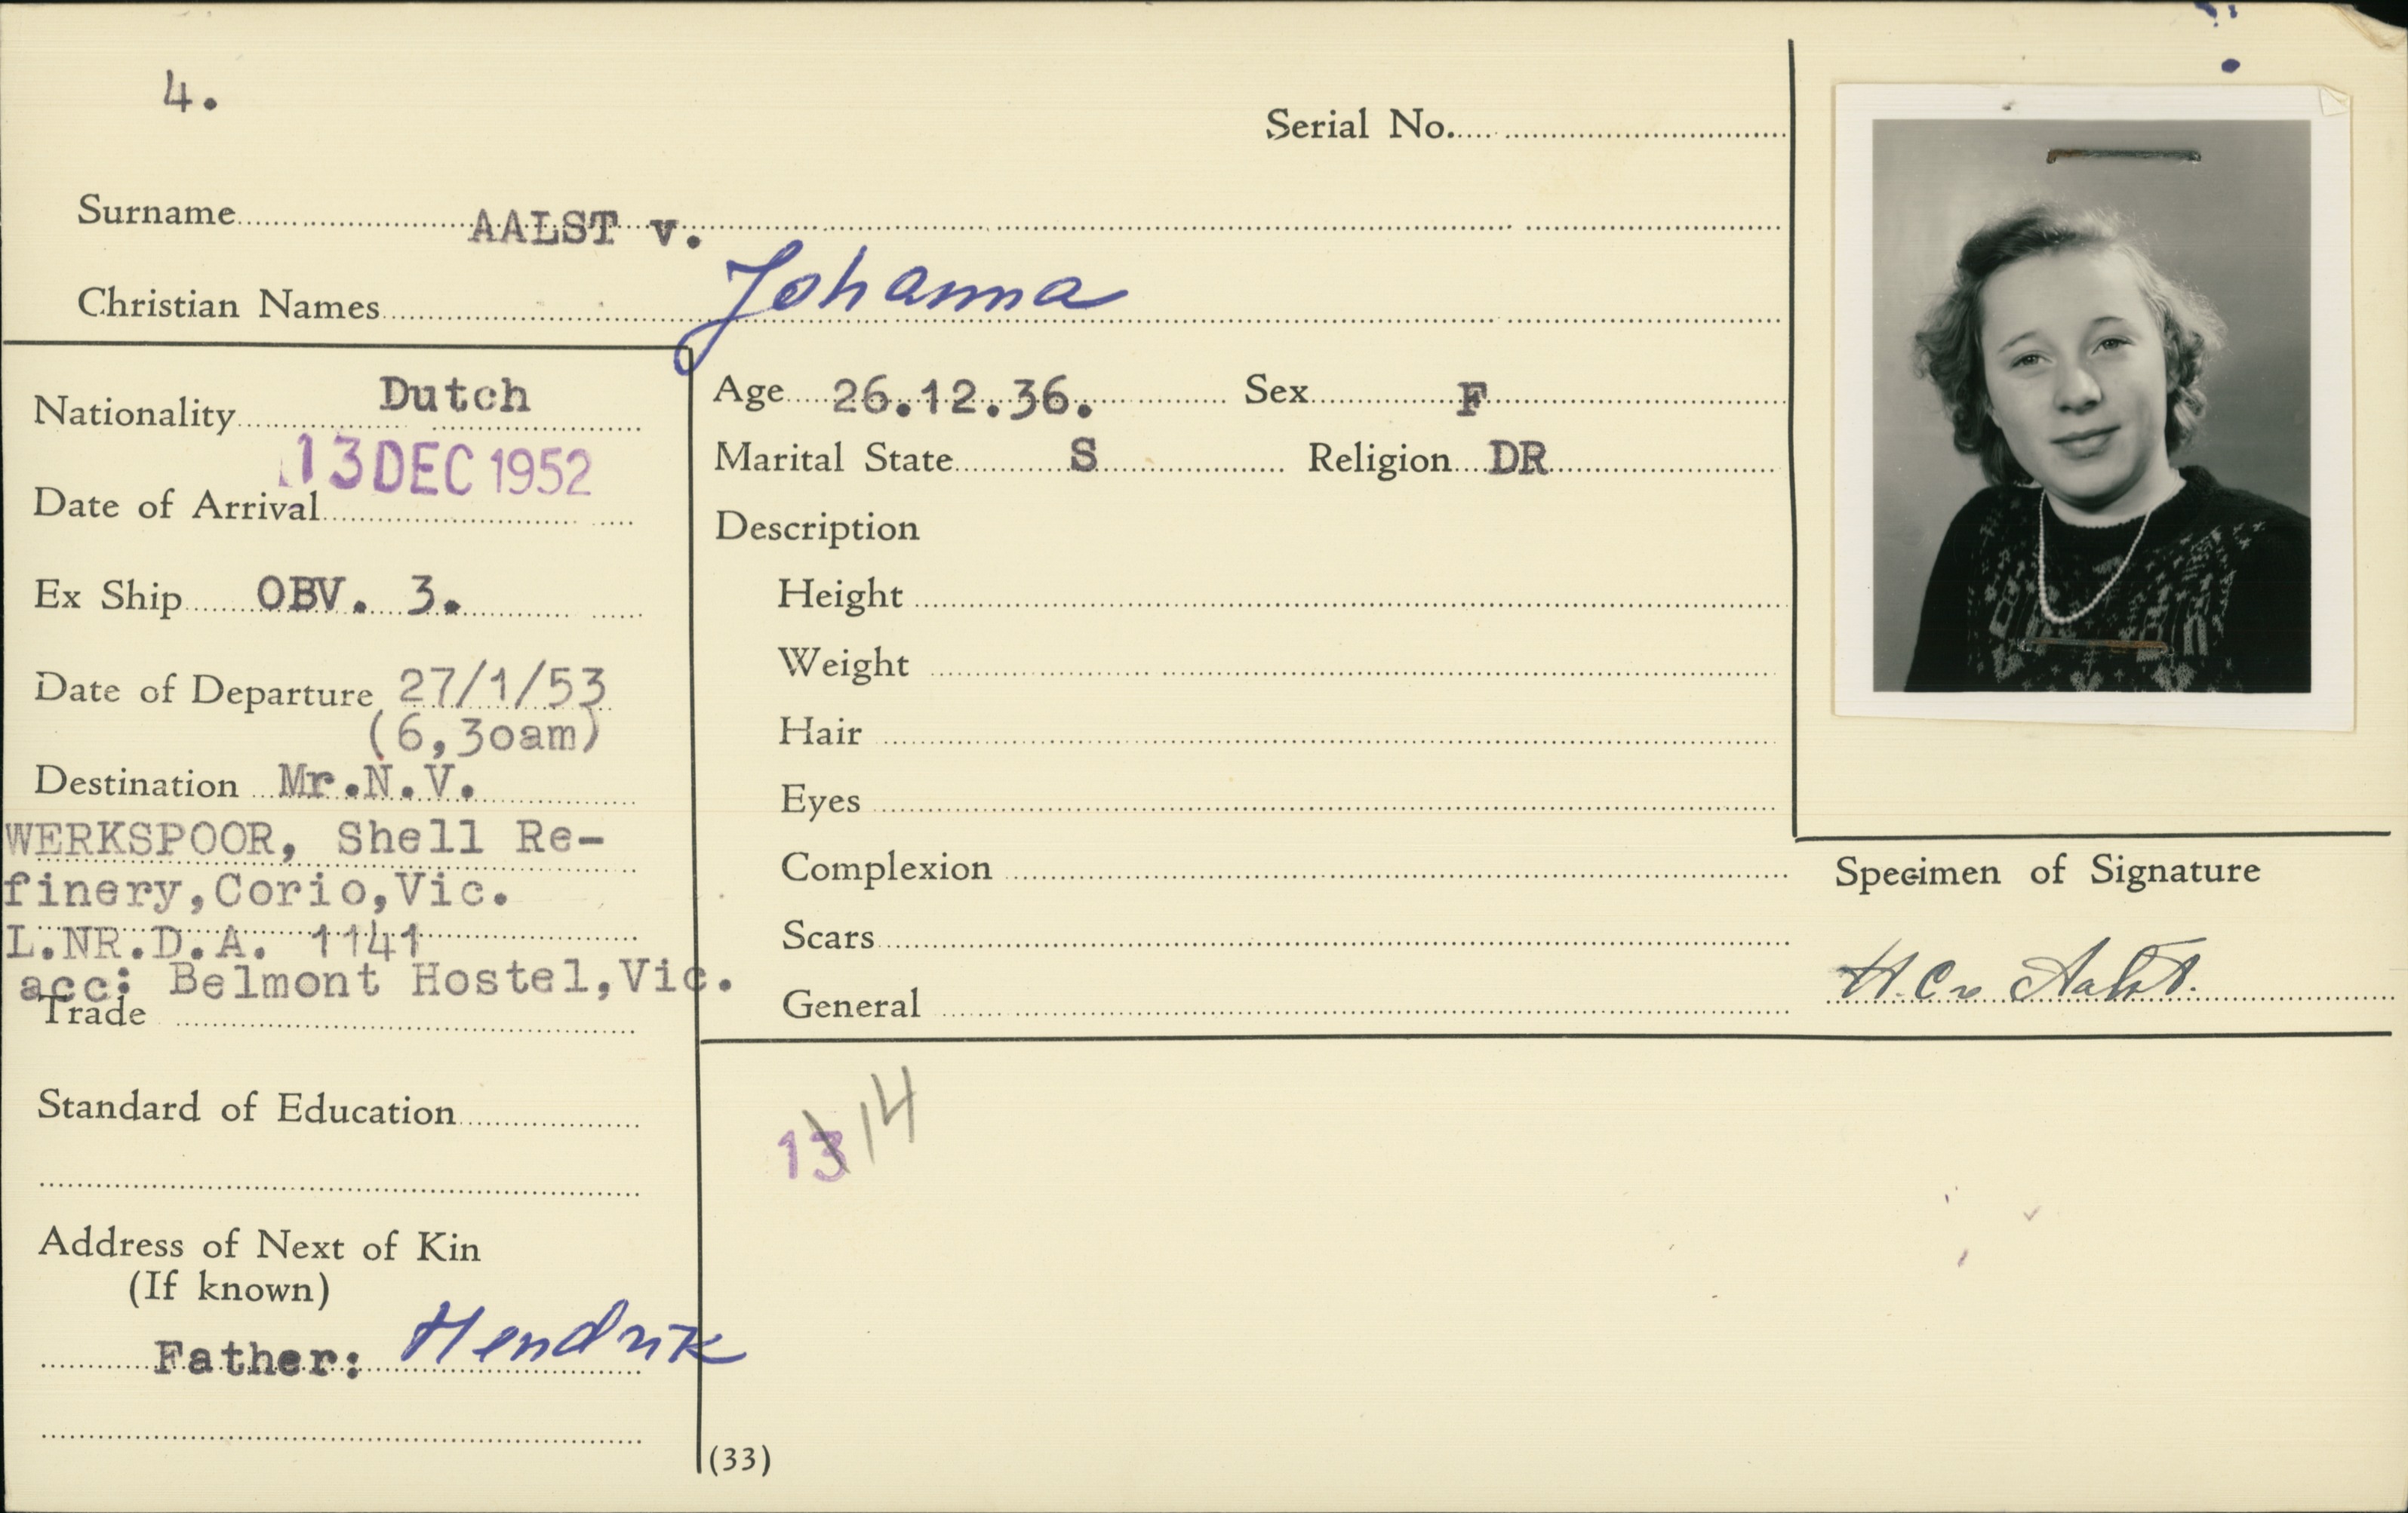 4.
Serial No.
Surname AALST v.
Christian Names Johanna
Nationality Dutch
Date of Arrival 13 DEC 1952
Ex Ship OBV. 3.
Date of Departure 27/1/53
(6,3oam)
Destination Mr.N.V.
WERKSPOOR, Shell Re-
finery,Corio,Vic.
L.NR.D.A. 1141
acc: Belmont Hostel,Vic.
Trade
Standard of Education
Address of Next of Kin
(If known)
Father: Hendrik
Age 26.12.36. Sex F
Marital State S Religion DR
Description
Height
Weight
Hair
Eyes
Complexion
Scars
General
13 14
(33)
Specimen of Signature
H.C v Aalst.